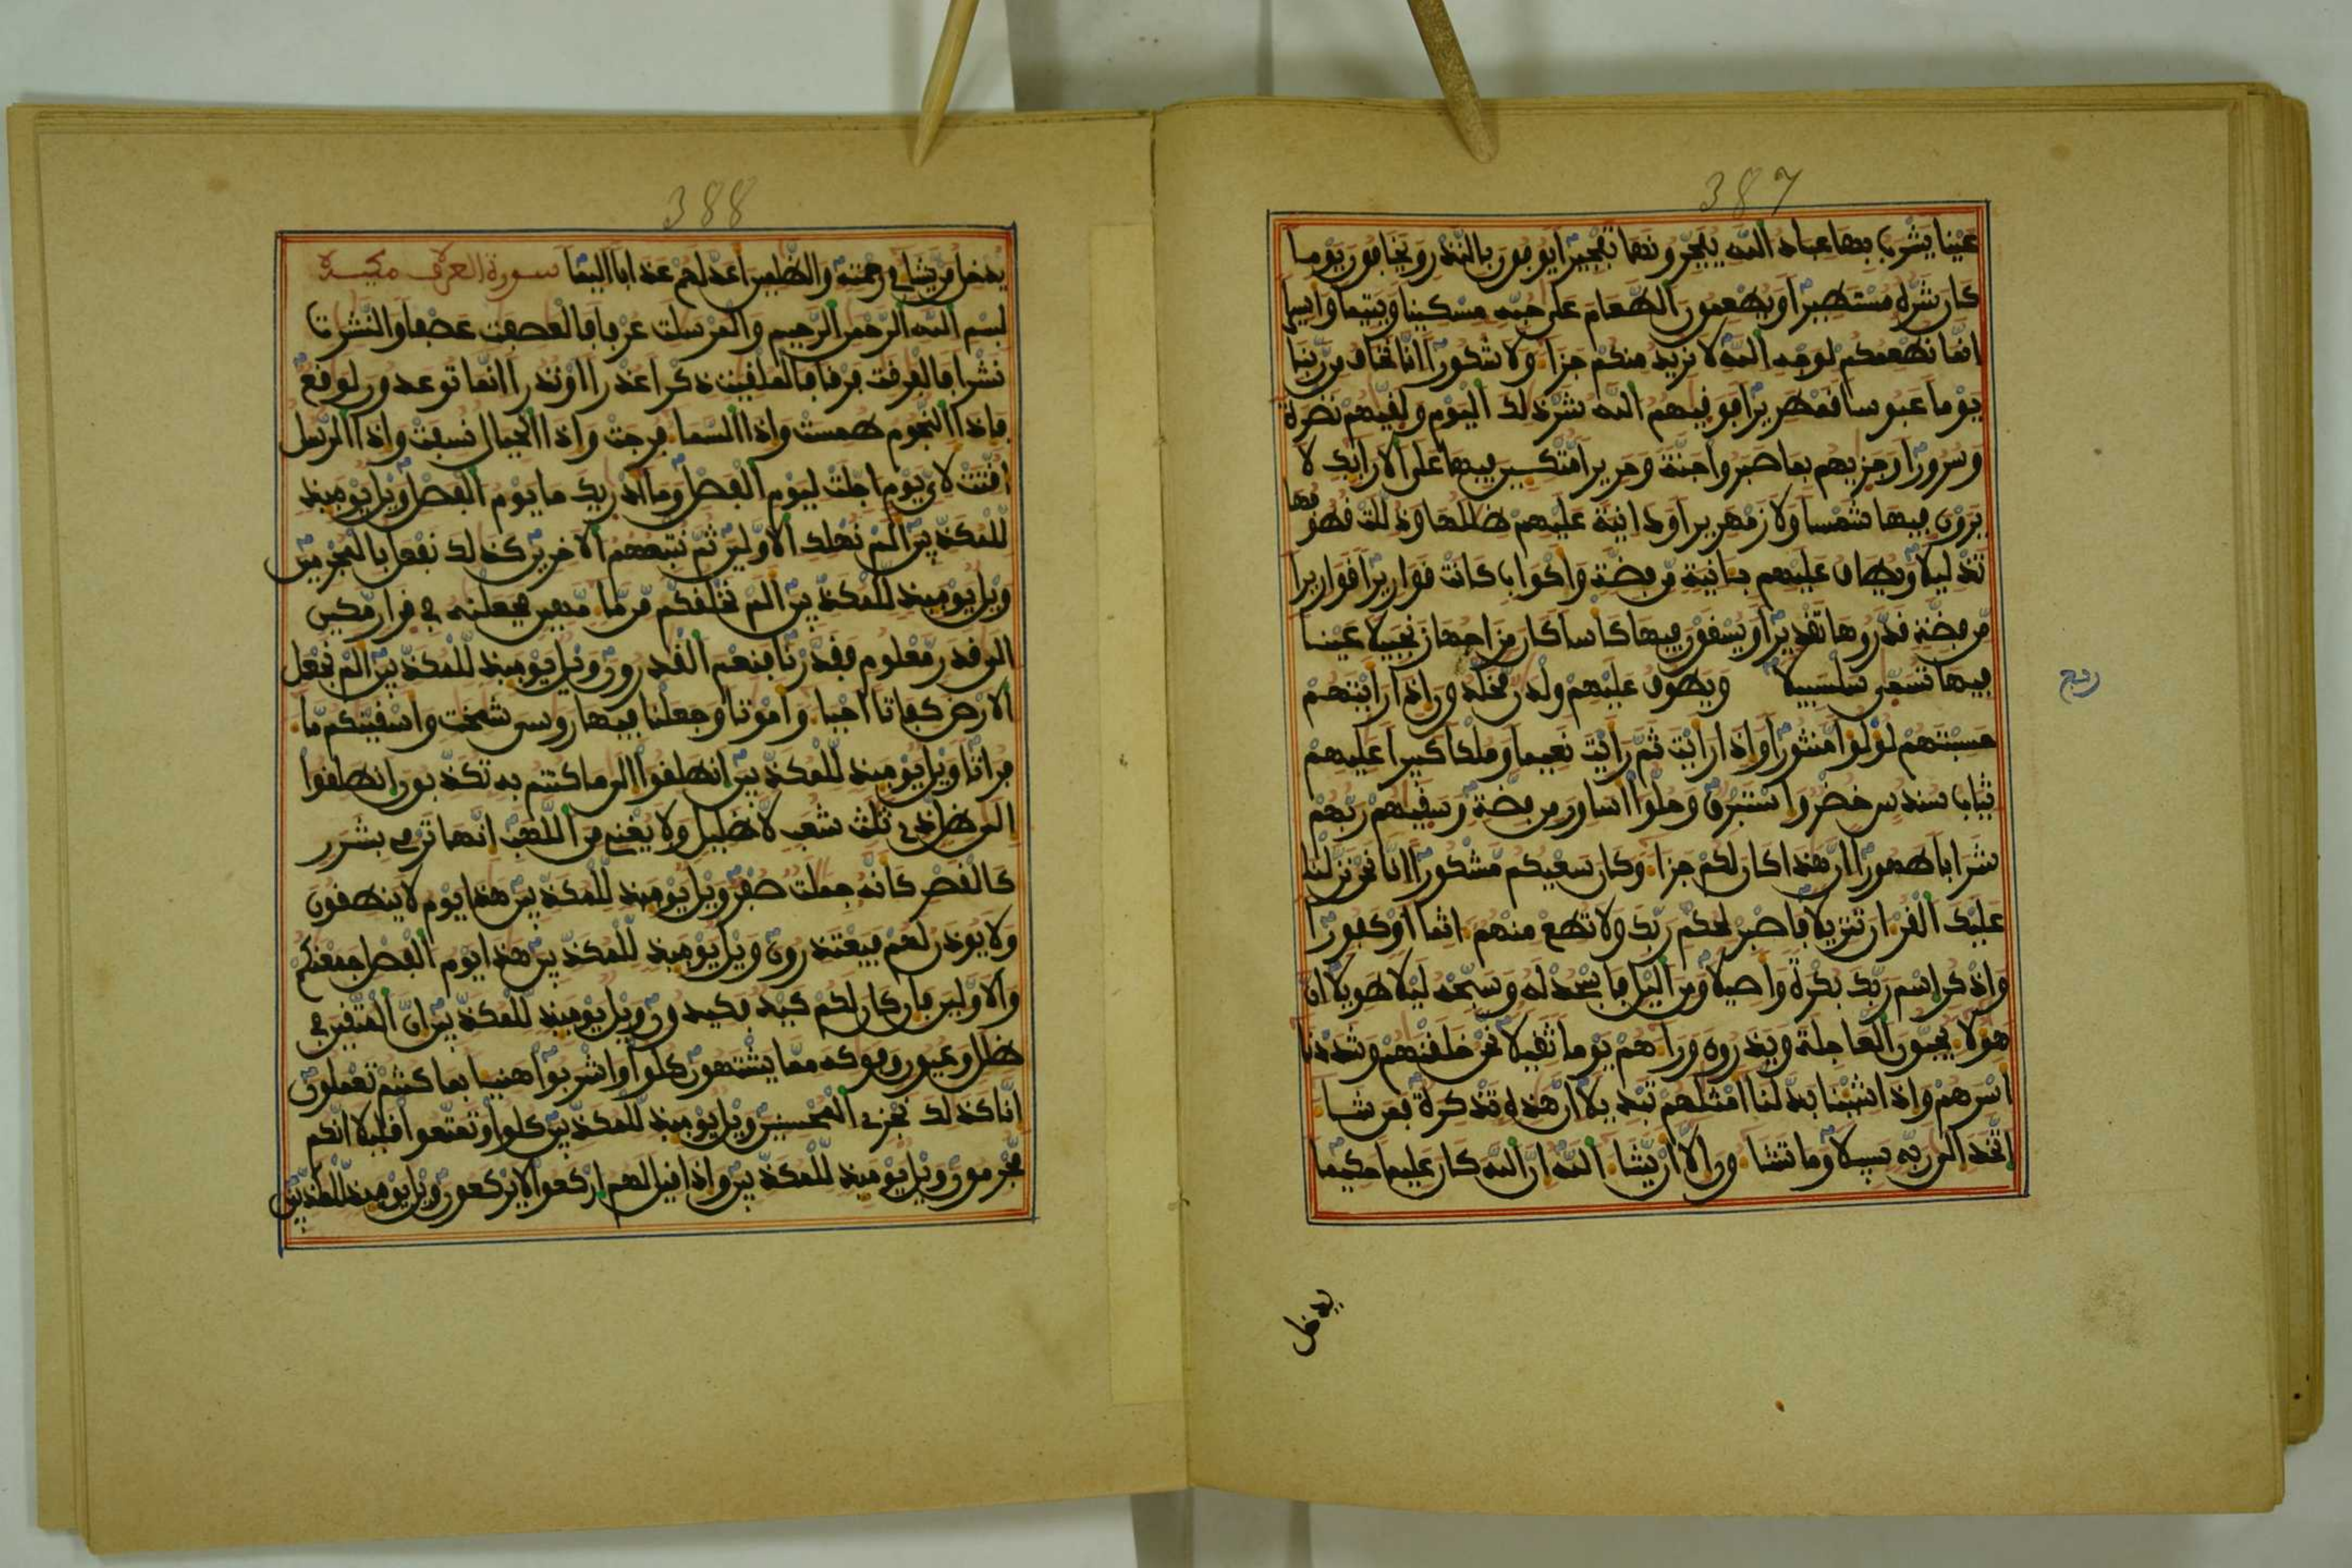 387
عينا يشرب بها عباد الله يفجرونها تفجيرا يوفون بالنذر ويخافون يوما
كان شره مستطيرا ويطعمون الطعام على حبه مسكينا ويتيما واسيرا
انما نطعمكم لوجه الله لا نريد منكم جزا ولا شكورا انا نخاف من ربنا
يوما عبوسا قمطريرا فوقيهم الله شر ذلك اليوم ولقيهم نضرة
وسرورا وجزيهم بما صبروا جنة وحريرا متكين فيها على الارايك لا
يرون فيها شمسا ولا زمهريرا ودانية عليهم ظللها وذللت قطوفها
تذليلا ويطاف عليهم بانية من فضة واكواب كانت قواريرا قواريرا
من فضة قدروها تقديرا ويسقون فيها كاسا كان مزاجها زنجبيلا عينا
فيها تسمى سلسبيلا ويطوف عليهم ولدن مخلدون اذا رايتهم
ربع
حسبتهم لولوا منثورا واذا رايت ثم رايت نعيما وملكا كبيرا عليهم
ثياب سندس خضر واستبرق وحلوا اساور من فضة وسقيهم ربهم
شرابا طهورا ان هذا كان لكم جزا وكان سعيكم مشكورا انا نحن نزلنا
عليك القران تنزيلا فاصبر لحكم ربك ولا تطع منهم اثما او كفورا
واذكر اسم ربك بكرة واصيلا ومن اليل فاسجد له وسبحه ليلا طويلا ان
هولا يحبون العاجلة ويذرون وراهم يوما ثقيلا نحن خلقنهم وشددنا
اسرهم واذا شينا بدلنا امثلهم تبديلا ان هذه تذكرة فمن شا
اتخذ الى ربه سبيلا وما تشاون الا ان يشا الله ان الله كان عليما حكيما
يدخل
388
يدخل من يشا في رحمته والظلمين اعد لهم عذابا اليما سورة العرف مكية
بسم الله الرحمن الرحيم والمرسلت عرفا فالعصفت عصفا والنشرت
نشرا فالفرقت فرقا فالملقيت ذكرا عذرا او نذرا انما توعدون لوقع
فاذا النجوم طمست واذا السما فرجت واذا الجبال نسفت واذا الرسل
اقتت لاي يوم اجلت ليوم الفصل وما ادريك ما يوم الفصل ويل يوميذ
للمكذبين الم نهلك الاولين ثم نتبعهم الاخرين كذلك نفعل بالمجرمين
ويل يوميذ للمكذبين الم نخلقكم من ما مهين فجعلنه في قرار مكين
الى قدر معلوم فقدرنا فنعم القدرون ويل يوميذ للمكذبين الم نجعل
الارض كفاتا احيا وامواتا وجعلنا فيها روسي شمخت واسقينكم ما
فراتا ويل يوميذ للمكذبين انطلقوا الى ما كنتم به تكذبون انطلقوا
الى ظل ذي ثلث شعب لا ظليل ولا يغني من اللهب انها ترمي بشرر
كالقصر كانه جملت صفر ويل يوميذ للمكذبين هذا يوم لا ينطقون
ولا يوذن لهم فيعتذرون ويل يوميذ للمكذبين هذا يوم الفصل جمعنكم
والاولين فان كان لكم كيد فكيدون ويل يوميذ للمكذبين ان المتقين في
ظلل وعيون وفوكه مما يشتهون كلوا واشربوا هنيا بما كنتم تعملون
انا كذلك نجزي المحسنين ويل يوميذ للمكذبين كلوا وتمتعوا قليلا انكم
مجرمون ويل يوميذ للمكذبين واذا قيل لهم اركعوا لا يركعون ويل يوميذ للمكذبين